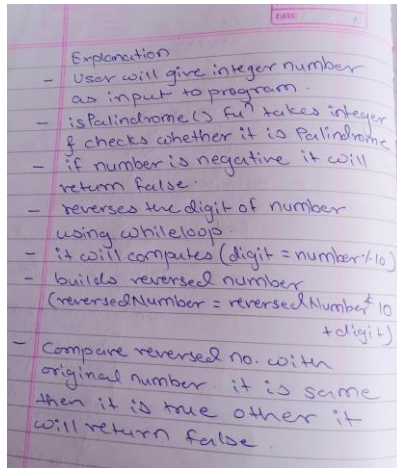 DATE
Explanation
- User will give integer number
as input to program.
- isPalindrome() fuⁿ takes integer
& checks whether it is Palindrome
- if number is negative it will
return false.
- reverses the digit of number
using whileloop.
- it will computes (digit = number%10)
- builds reversed number
(reversedNumber = reversedNumber * 10
+ digit)
- Compare reversed no. with
original number. it is same
then it is true other it
will return false.